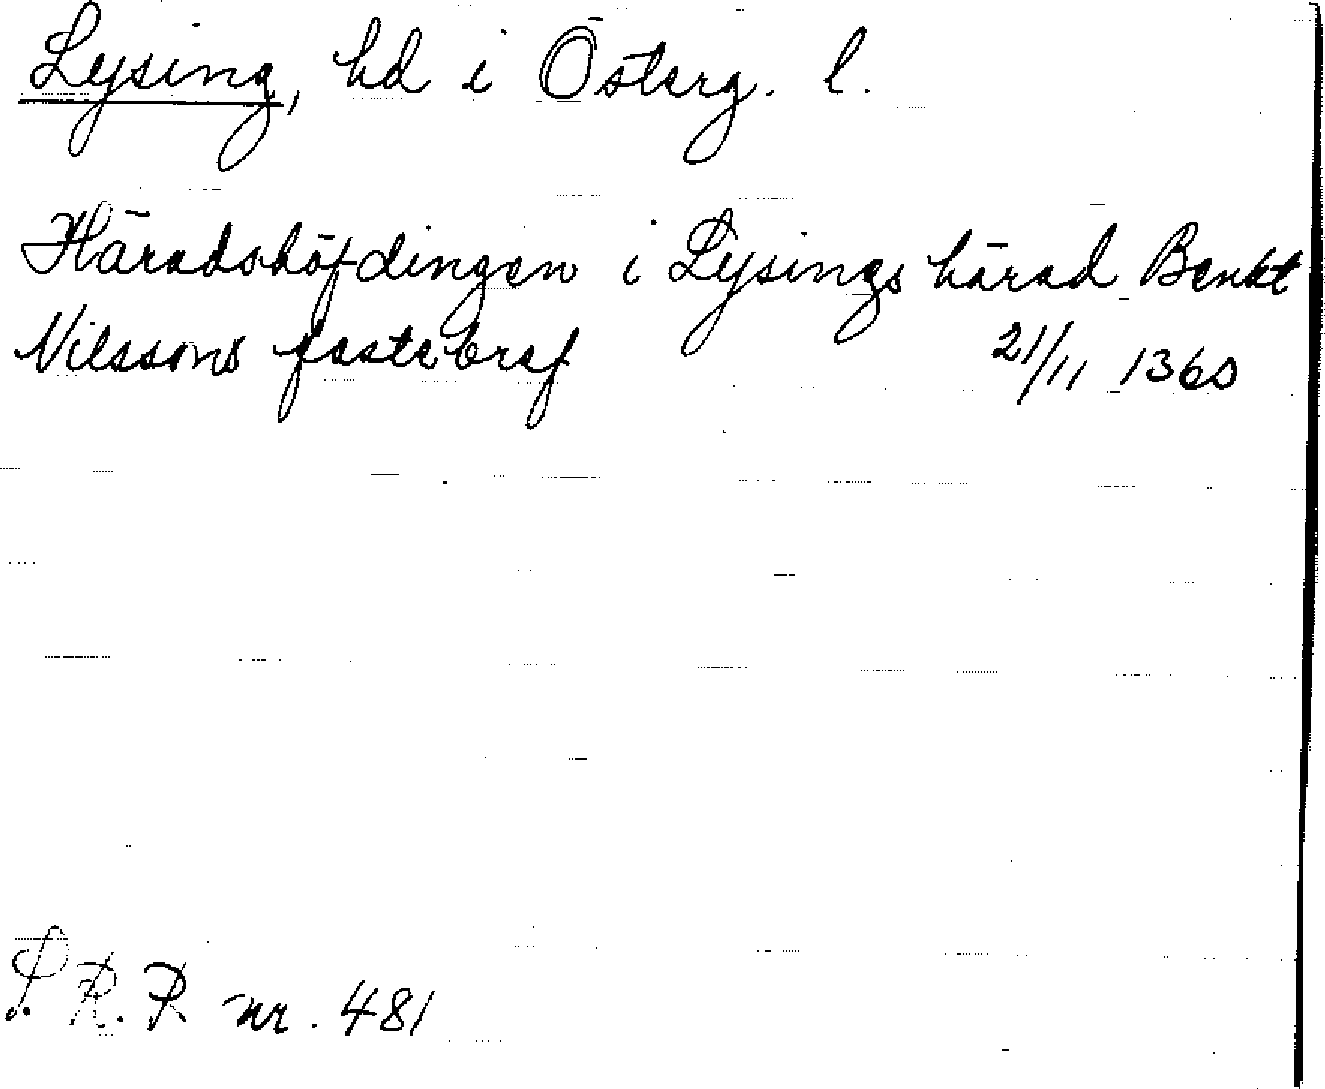 Lysing, hd i Österg. l.
Häradshöfdingen i Lysings härad Benkt
Nilssons fastebref 21/11 1360
S. R. P. nr. 481